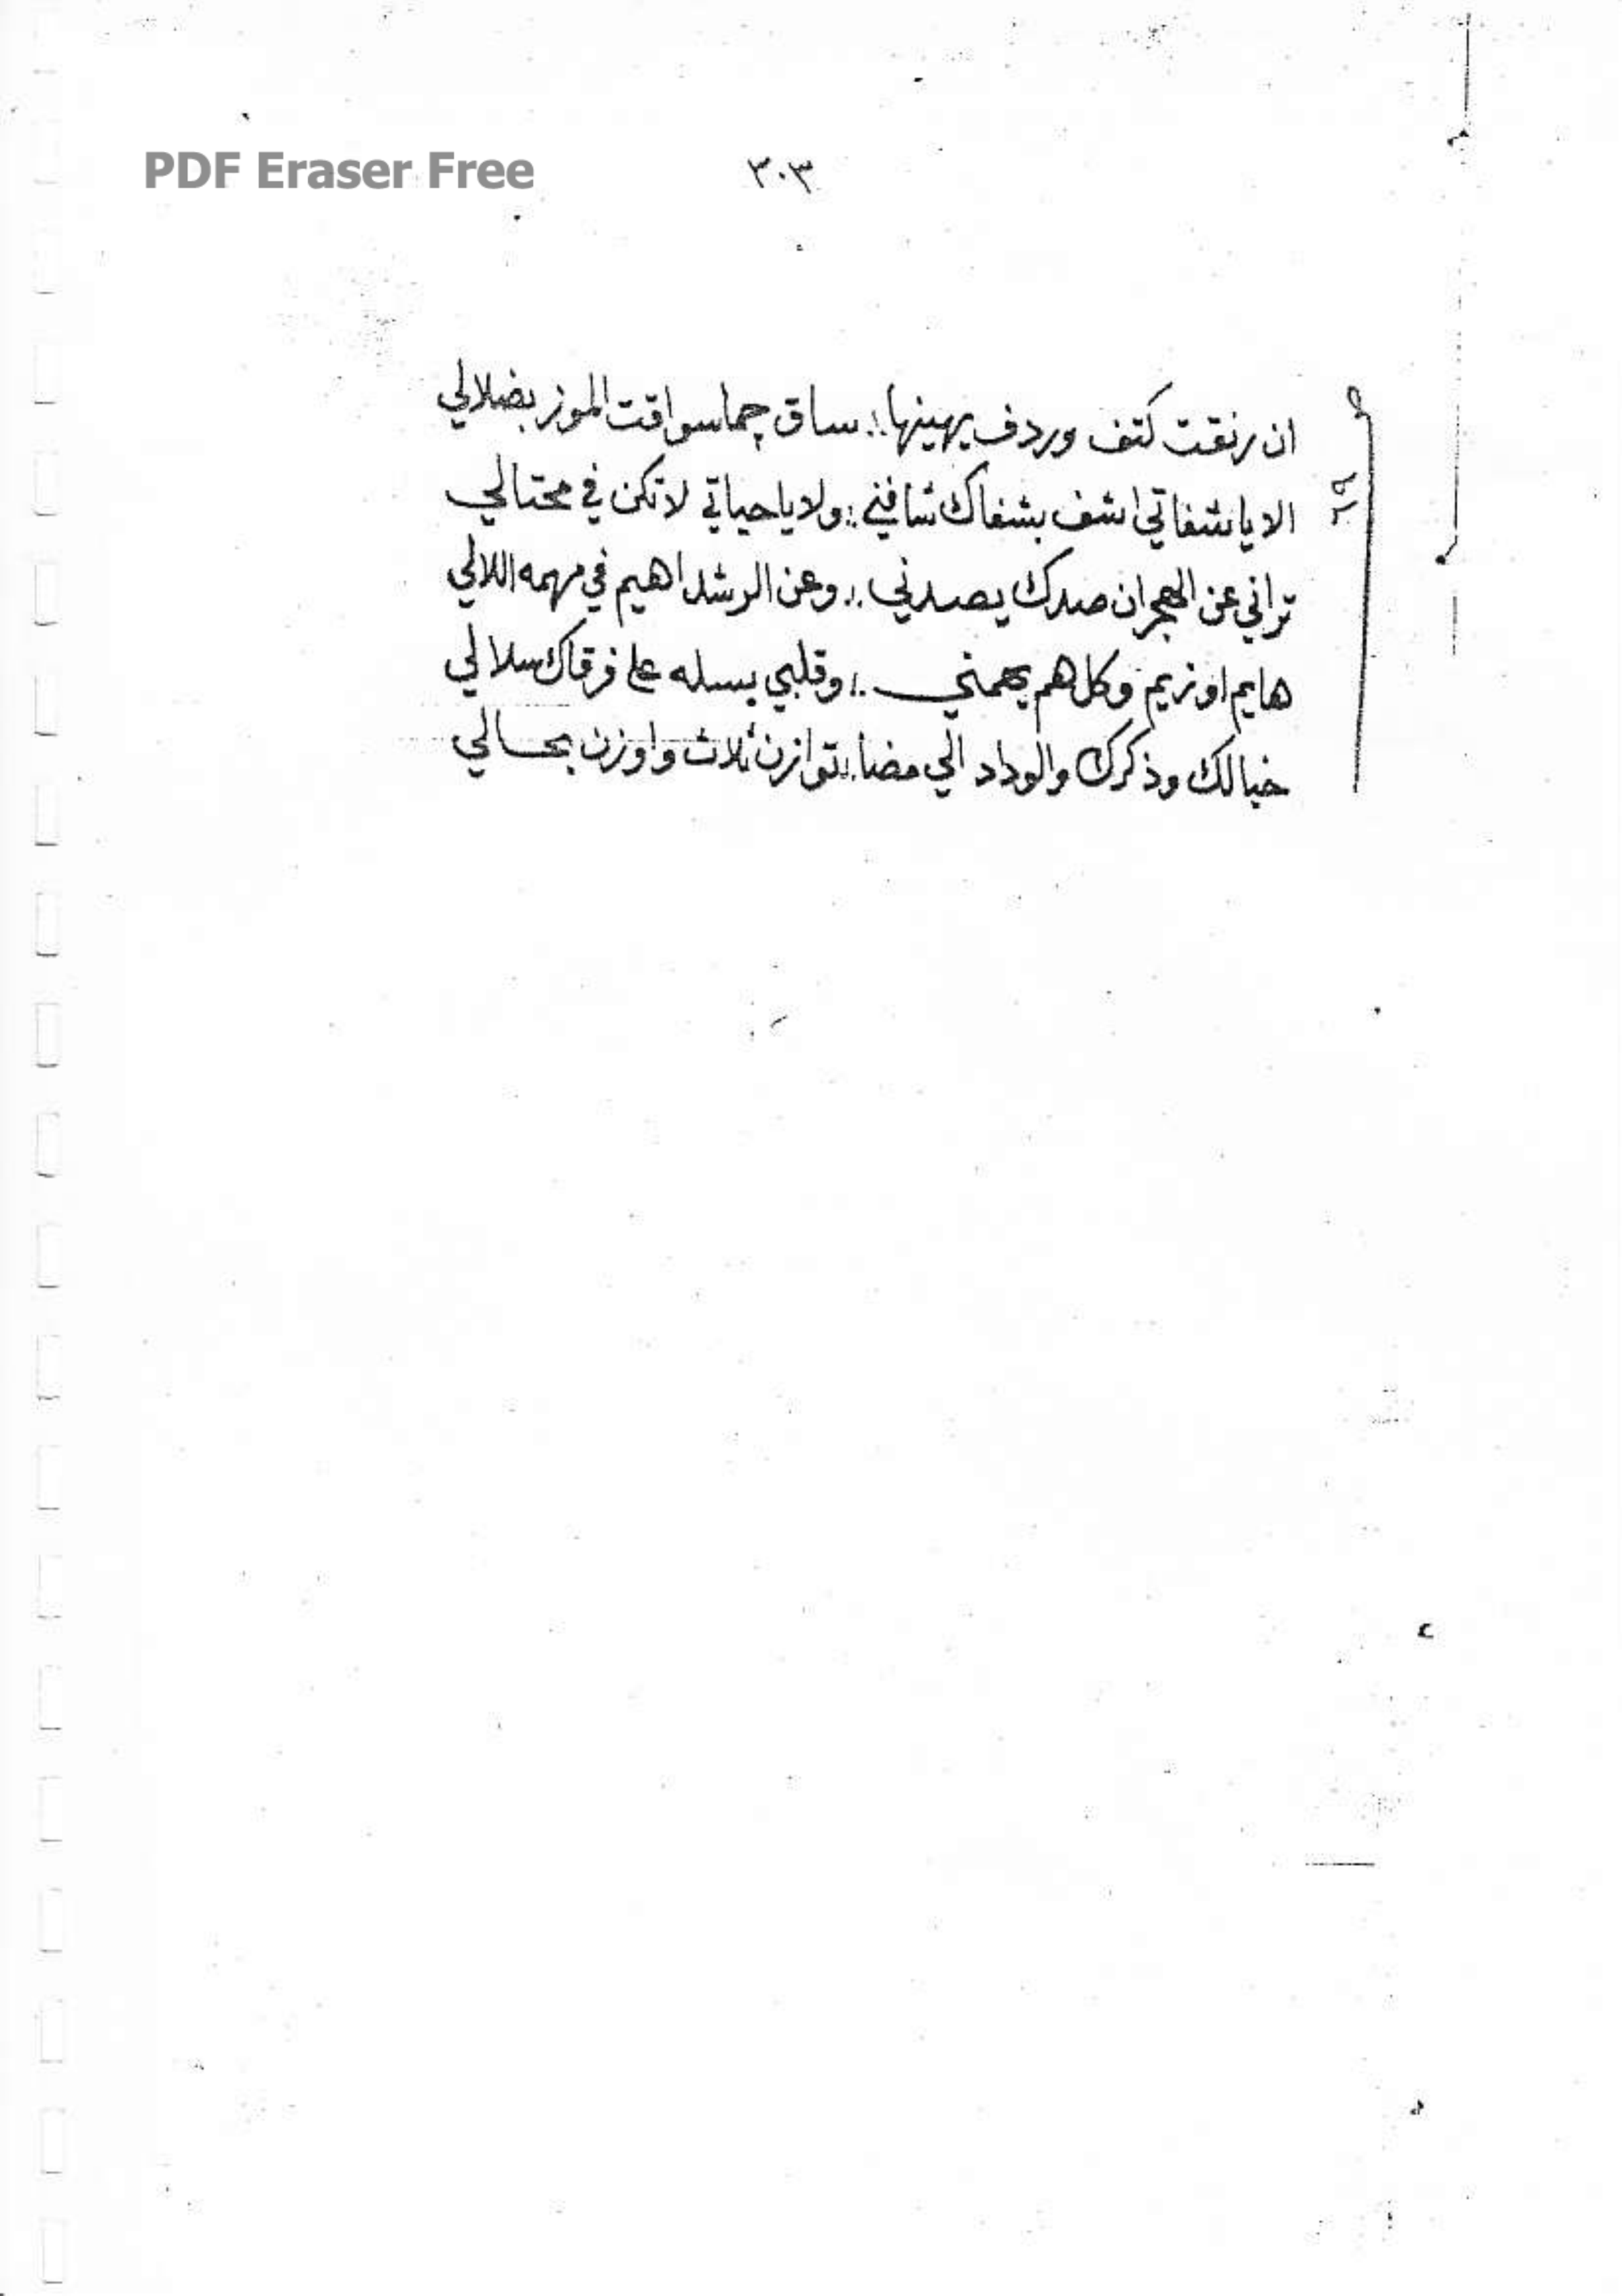 PDF Eraser Free
٣٠٣
ان رنقت كتف وردف يهينها؛ ساق جما سواقت الموز بضلالي
الا يا شفاتي اشف بشفاك شافني؛ ولا يا حياتي لا تكن في محتالي
تراني عن الهجران صدك يصدني؛ وعن الرشد اهيم في مهمه اللالي
هايم او نريم وكل هم يهمني؛ وقلبي بسله على فرقاك سلالي
خيالك وذكرك والوداد الي مضا؛ توازن ثلاث واوزن بحالي